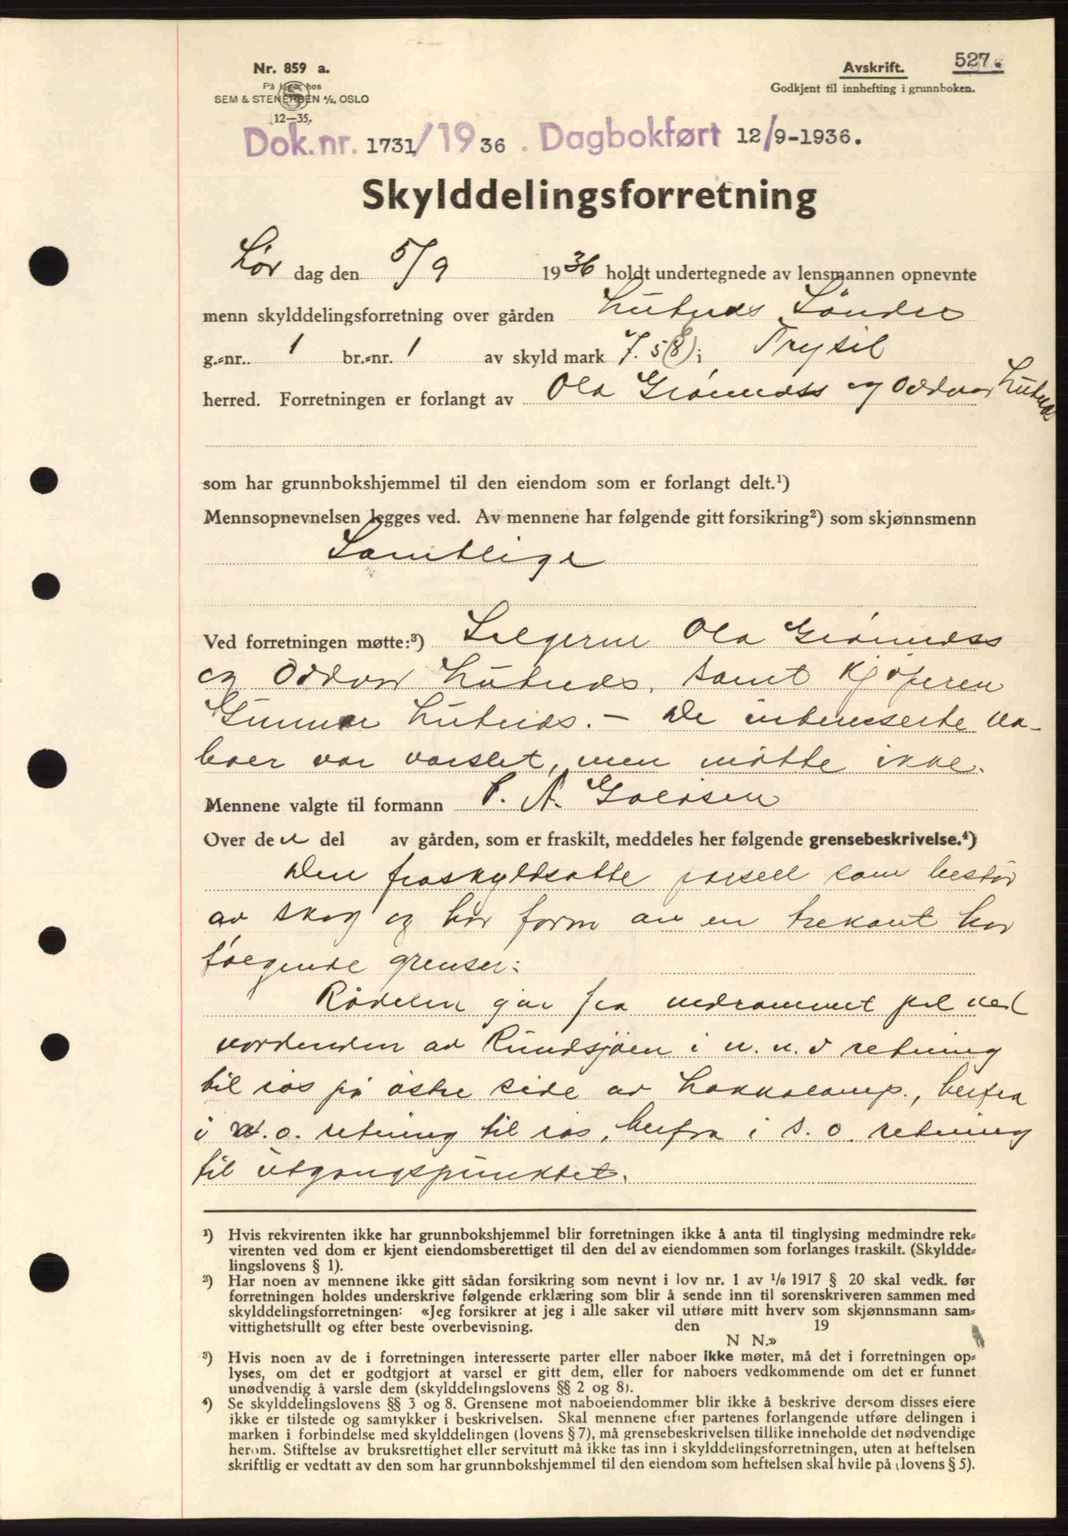 527.
Nr. 859 a.
På lager hos
SEM & STENERSEN A/S, OSLO
12—35.
Avskrift.
Godkjent til innhefting i grunnboken.
Dok.nr. 1731/1936. Dagbokført 12/9-1936.
Skylddelingsforretning
Lør dag den 5/9 1936 holdt undertegnede av lensmannen opnevnte
menn skylddelingsforretning over gården Lutnes Søndre
g.-nr.. 1 br.-nr. 1 av skyld mark 7.58 i Trysil
herred. Forretningen er forlangt av Ola Grønnæss og Oddvar Lutnes
som har grunnbokshjemmel til den eiendom som er forlangt delt.¹)
Mennsopnevnelsen legges ved. Av mennene har følgende gitt forsikring²) som skjønnsmenn
Samtlige
Ved forretningen møtte:³) Selgerne Ola Grønnæss
og Oddvar Lutnes, samt kjøperen
Gunnar Lutnes. – De interesserte na-
boer var varslet, men møtte ikke.
Mennene valgte til formann P. A. Galåsen
Over den del av gården, som er fraskilt, meddeles her følgende grensebeskrivelse.⁴)
Den fraskyldsatte parsell som består
av skog og har form av en trekant har
følgende grenser:
Rådelen går fra nedrammet pel ved
nordenden av Rundsjøen i n. n. v retning
til røs på østre side av , herfra
i n. o. retning til røs, herfra i s. o. retning
til utgangspunktet.
¹) Hvis rekvirenten ikke har grunnbokshjemmel blir forretningen ikke å anta til tinglysing medmindre rek-
virenten ved dom er kjent eiendomsberettiget til den del av eiendommen som forlanges fraskilt. (Skyldde-
lingslovens § 1).
²) Har noen av mennene ikke gitt sådan forsikring som nevnt i lov nr. 1 av 1/6 1917 § 20 skal vedk. før
forretningen holdes underskrive følgende erklæring som blir å sende inn til sorenskriveren sammen med
skylddelingsforretningen: «Jeg forsikrer at jeg i alle saker vil utføre mitt hverv som skjønnsmann sam-
vittighetsfullt og efter beste overbevisning. den 19
N N.»
³) Hvis noen av de i forretningen interesserte parter eller naboer ikke møter, må det i forretningen op-
lyses, om det er godtgjort at varsel er gitt dem, eller for naboers vedkommende om det er funnet
unødvendig å varsle dem (skylddelingslovens §§ 2 og 8).
⁴) Se skylddelingslovens §§ 3 og 8. Grensene mot naboeiendommer blir ikke å beskrive dersom disses eiere
ikke er tilstede og samtykker i beskrivelsen. Skal mennene efter partenes forlangende utføre delingen i
marken i forbindelse med skylddelingen (lovens § 7), må grensebeskrivelsen tillike inneholde det nødvendige
herom. Stiftelse av bruksrettighet eller servitutt må ikke tas inn i skylddelingsforretningen, uten at heftelsen
skriftlig er vedtatt av den som har grunnbokshjemmel til den eiendom som heftelsen skal hvile på (lovens § 5).